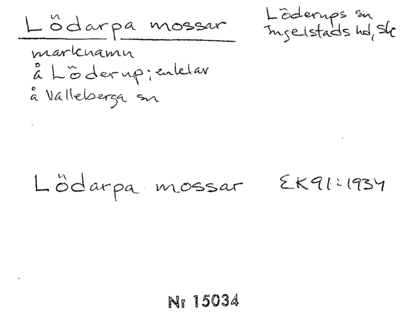 Lödarpa mossar
Löderups sn
Ingelstads hd, Sk
marknamn
å Löderup; enklav
å Valleberga sn
Lödarpa mossar EK91:1934
Nr 15034